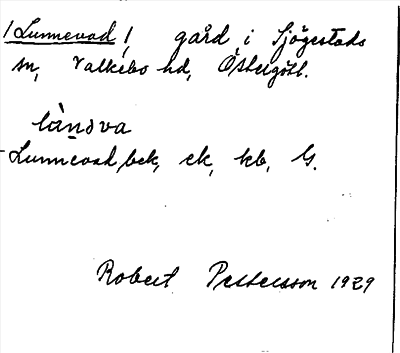 /Lunnevad/, gård i Sjögestads
sn, Valkebo hd, Östergötl.
lànǝva
Lunnevad, bek, ek, kb, G.
Robert Pettersson 1929